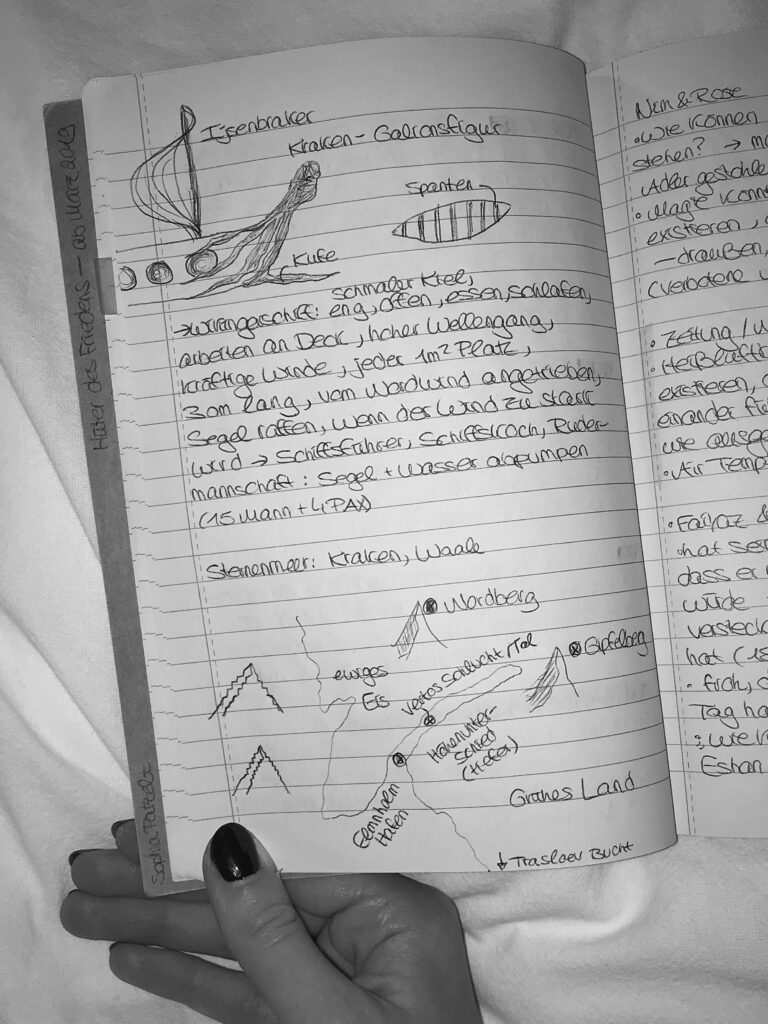 Hüter des Friedens — ab März 2019
Sophia Patzelt
Ijsenbraker
Kraken-Galionsfigur
Spanten
Kufe
schmaler Kiel,
→ Wikingerschiff: eng, offen, essen, schlafen,
arbeiten an Deck, hoher Wellengang,
kräftige Winde, jeder 1m² Platz,
30m lang, vom Nordwind angetrieben,
Segel raffen, wenn der Wind zu stark
wird → Schiffsführer, Schiffskoch, Ruder-
mannschaft: Segel + Wasser abpumpen
(15 Mann + 4 PAX)
Sternenmeer: Kraken, Waale
Nordberg
ewiges
Eis
Ventos Schlucht/Tal
Gipfelberg
Höhenunter-
schied
(tiefer)
Hafen
Grünes Land
↓ Traslaer Bucht
Nim & Rose
• Wie können
stehen? →
Adler
• Magie
existieren,
— draußen,
(verbotene
• Zeitung /
•
existieren,
einander
wie
• Air
•
hat
dass er
würde
hat (18
•
Tag
Wie
Eshan